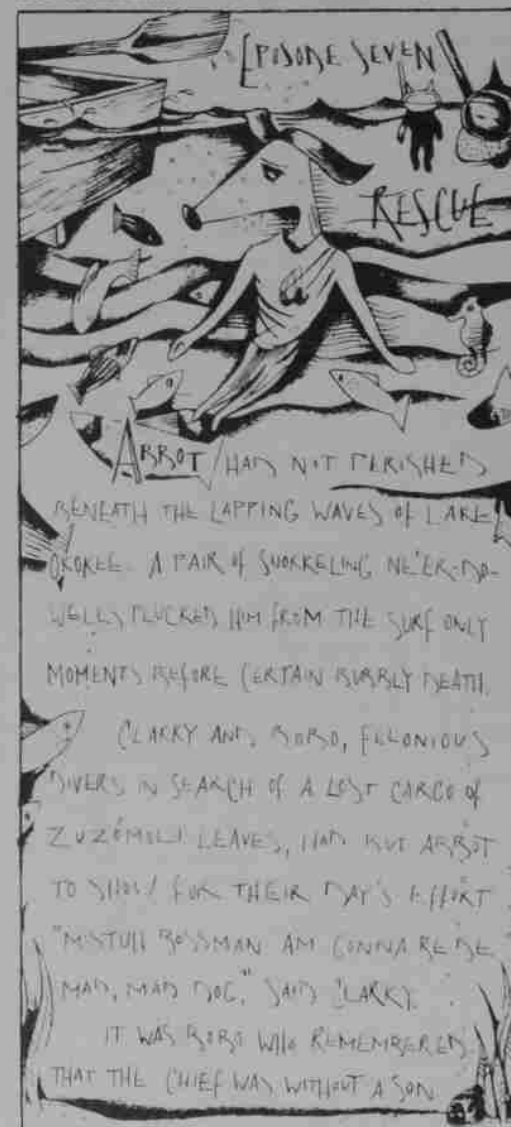 EPISODE SEVEN
RESCUE
ABBOT HAD NOT PERISHED
BENEATH THE LAPPING WAVES OF LAKE
OKOKEE. A PAIR OF SNORKELING NE'ER-DO-
WELLS PLUCKED HIM FROM THE SURF ONLY
MOMENTS BEFORE CERTAIN BUBBLY DEATH.
CLARKY AND BOBO, FELONIOUS
DIVERS IN SEARCH OF A LOST CARGO OF
LEAVES, HAD BUT ABBOT
TO SHOW FOR THEIR DAY'S EFFORT
"MISTUH BOSSMAN AM GONNA BE BE
MAD, MAD DOG," SAID CLARKY.
IT WAS BOBO WHO REMEMBERED
THAT THE CHIEF WAS WITHOUT A SON